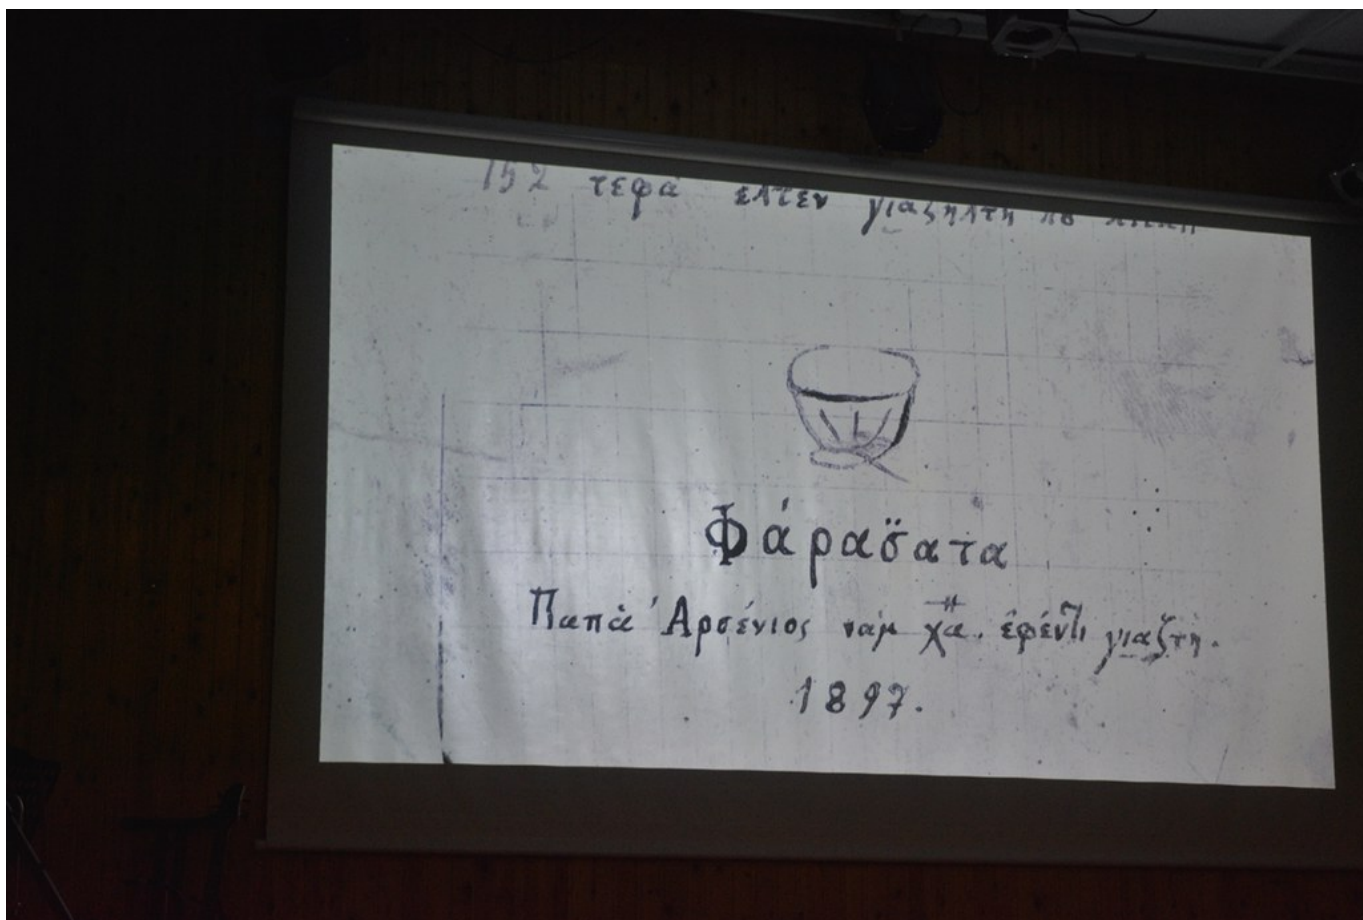 152 τεφά ελτεν γιαζηλτη πο
Φάρασ̈ατα
Παπὰ Ἀρσένιος ναμ χα. ἐφέντι γιαζτή.
1897.